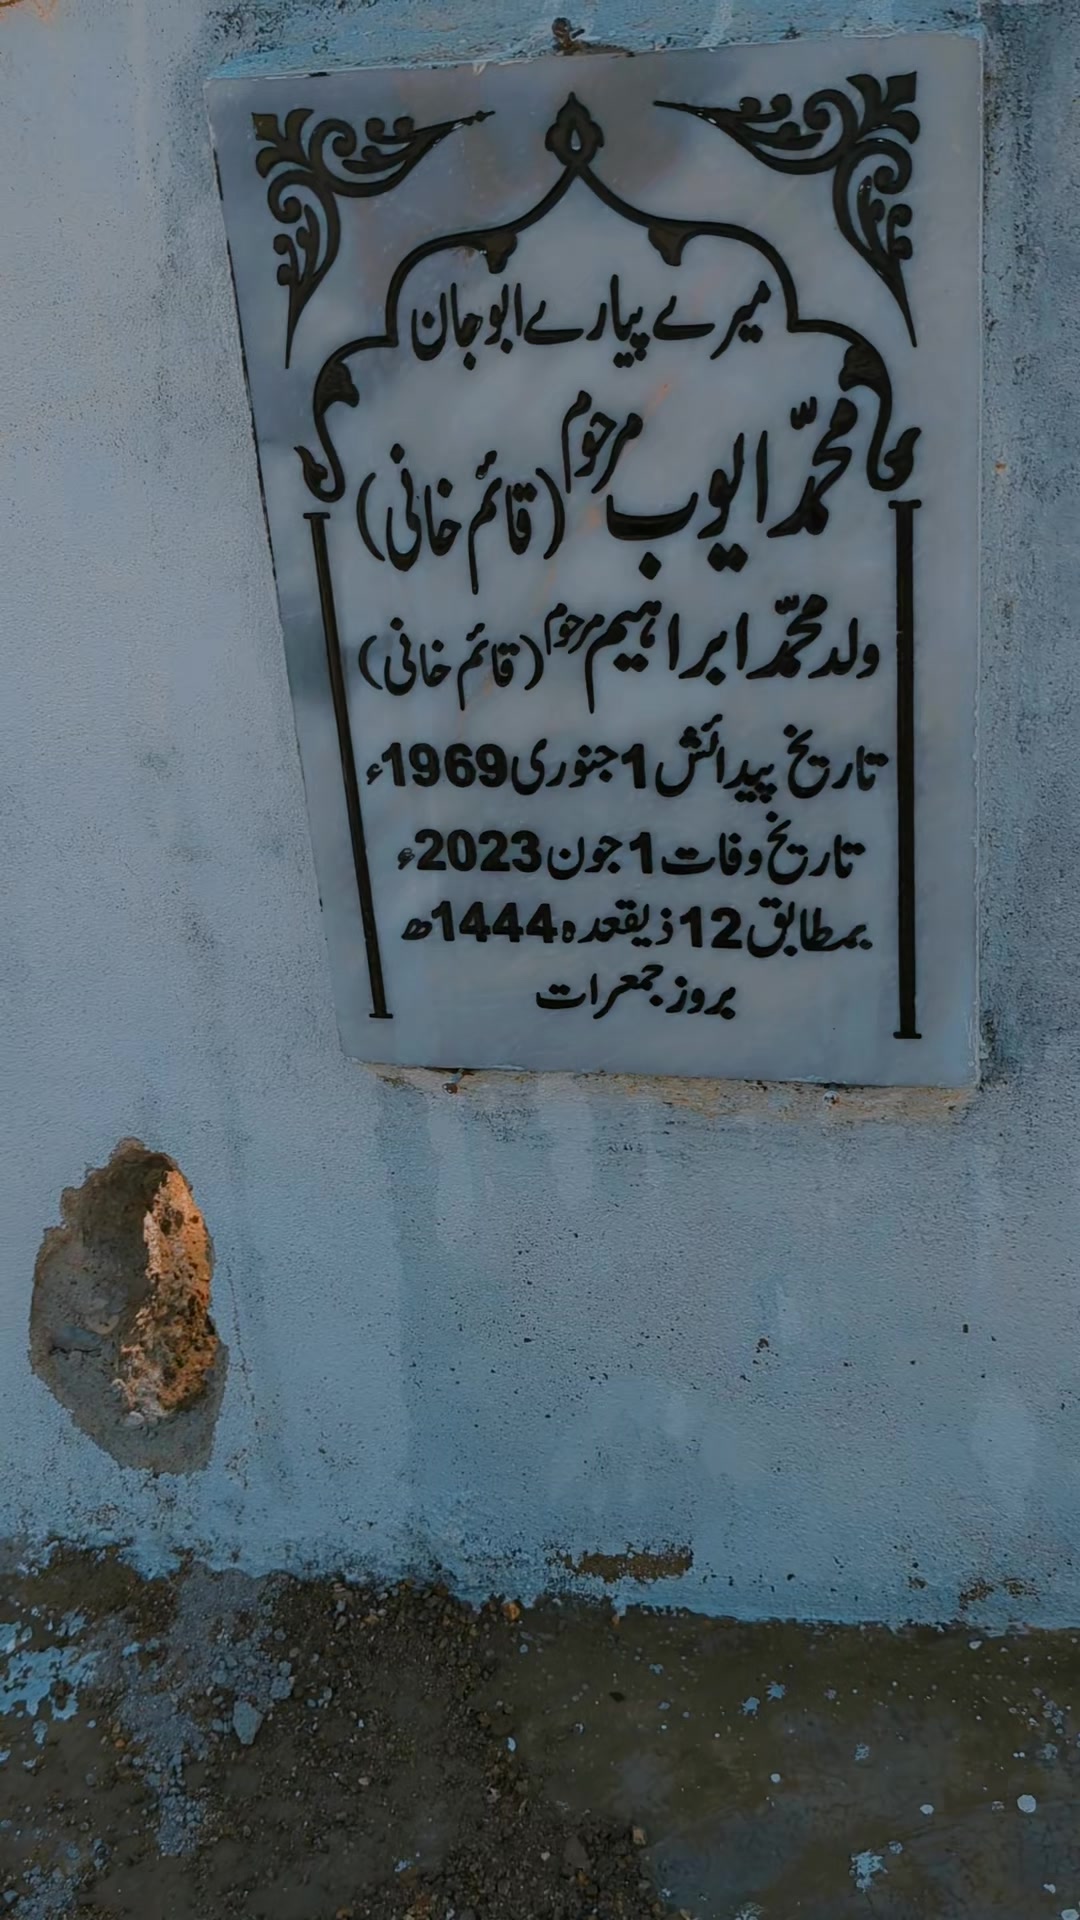 میرے پیارے ابو جان
محمّد ایوب مرحوم (قائم خانی)
ولد محمّد ابراہیم مرحوم (قائم خانی)
تاریخ پیدائش 1 جنوری 1969ء
تاریخ وفات 1 جون 2023ء
بمطابق 12 ذیقعدہ 1444ھ
بروز جمعرات